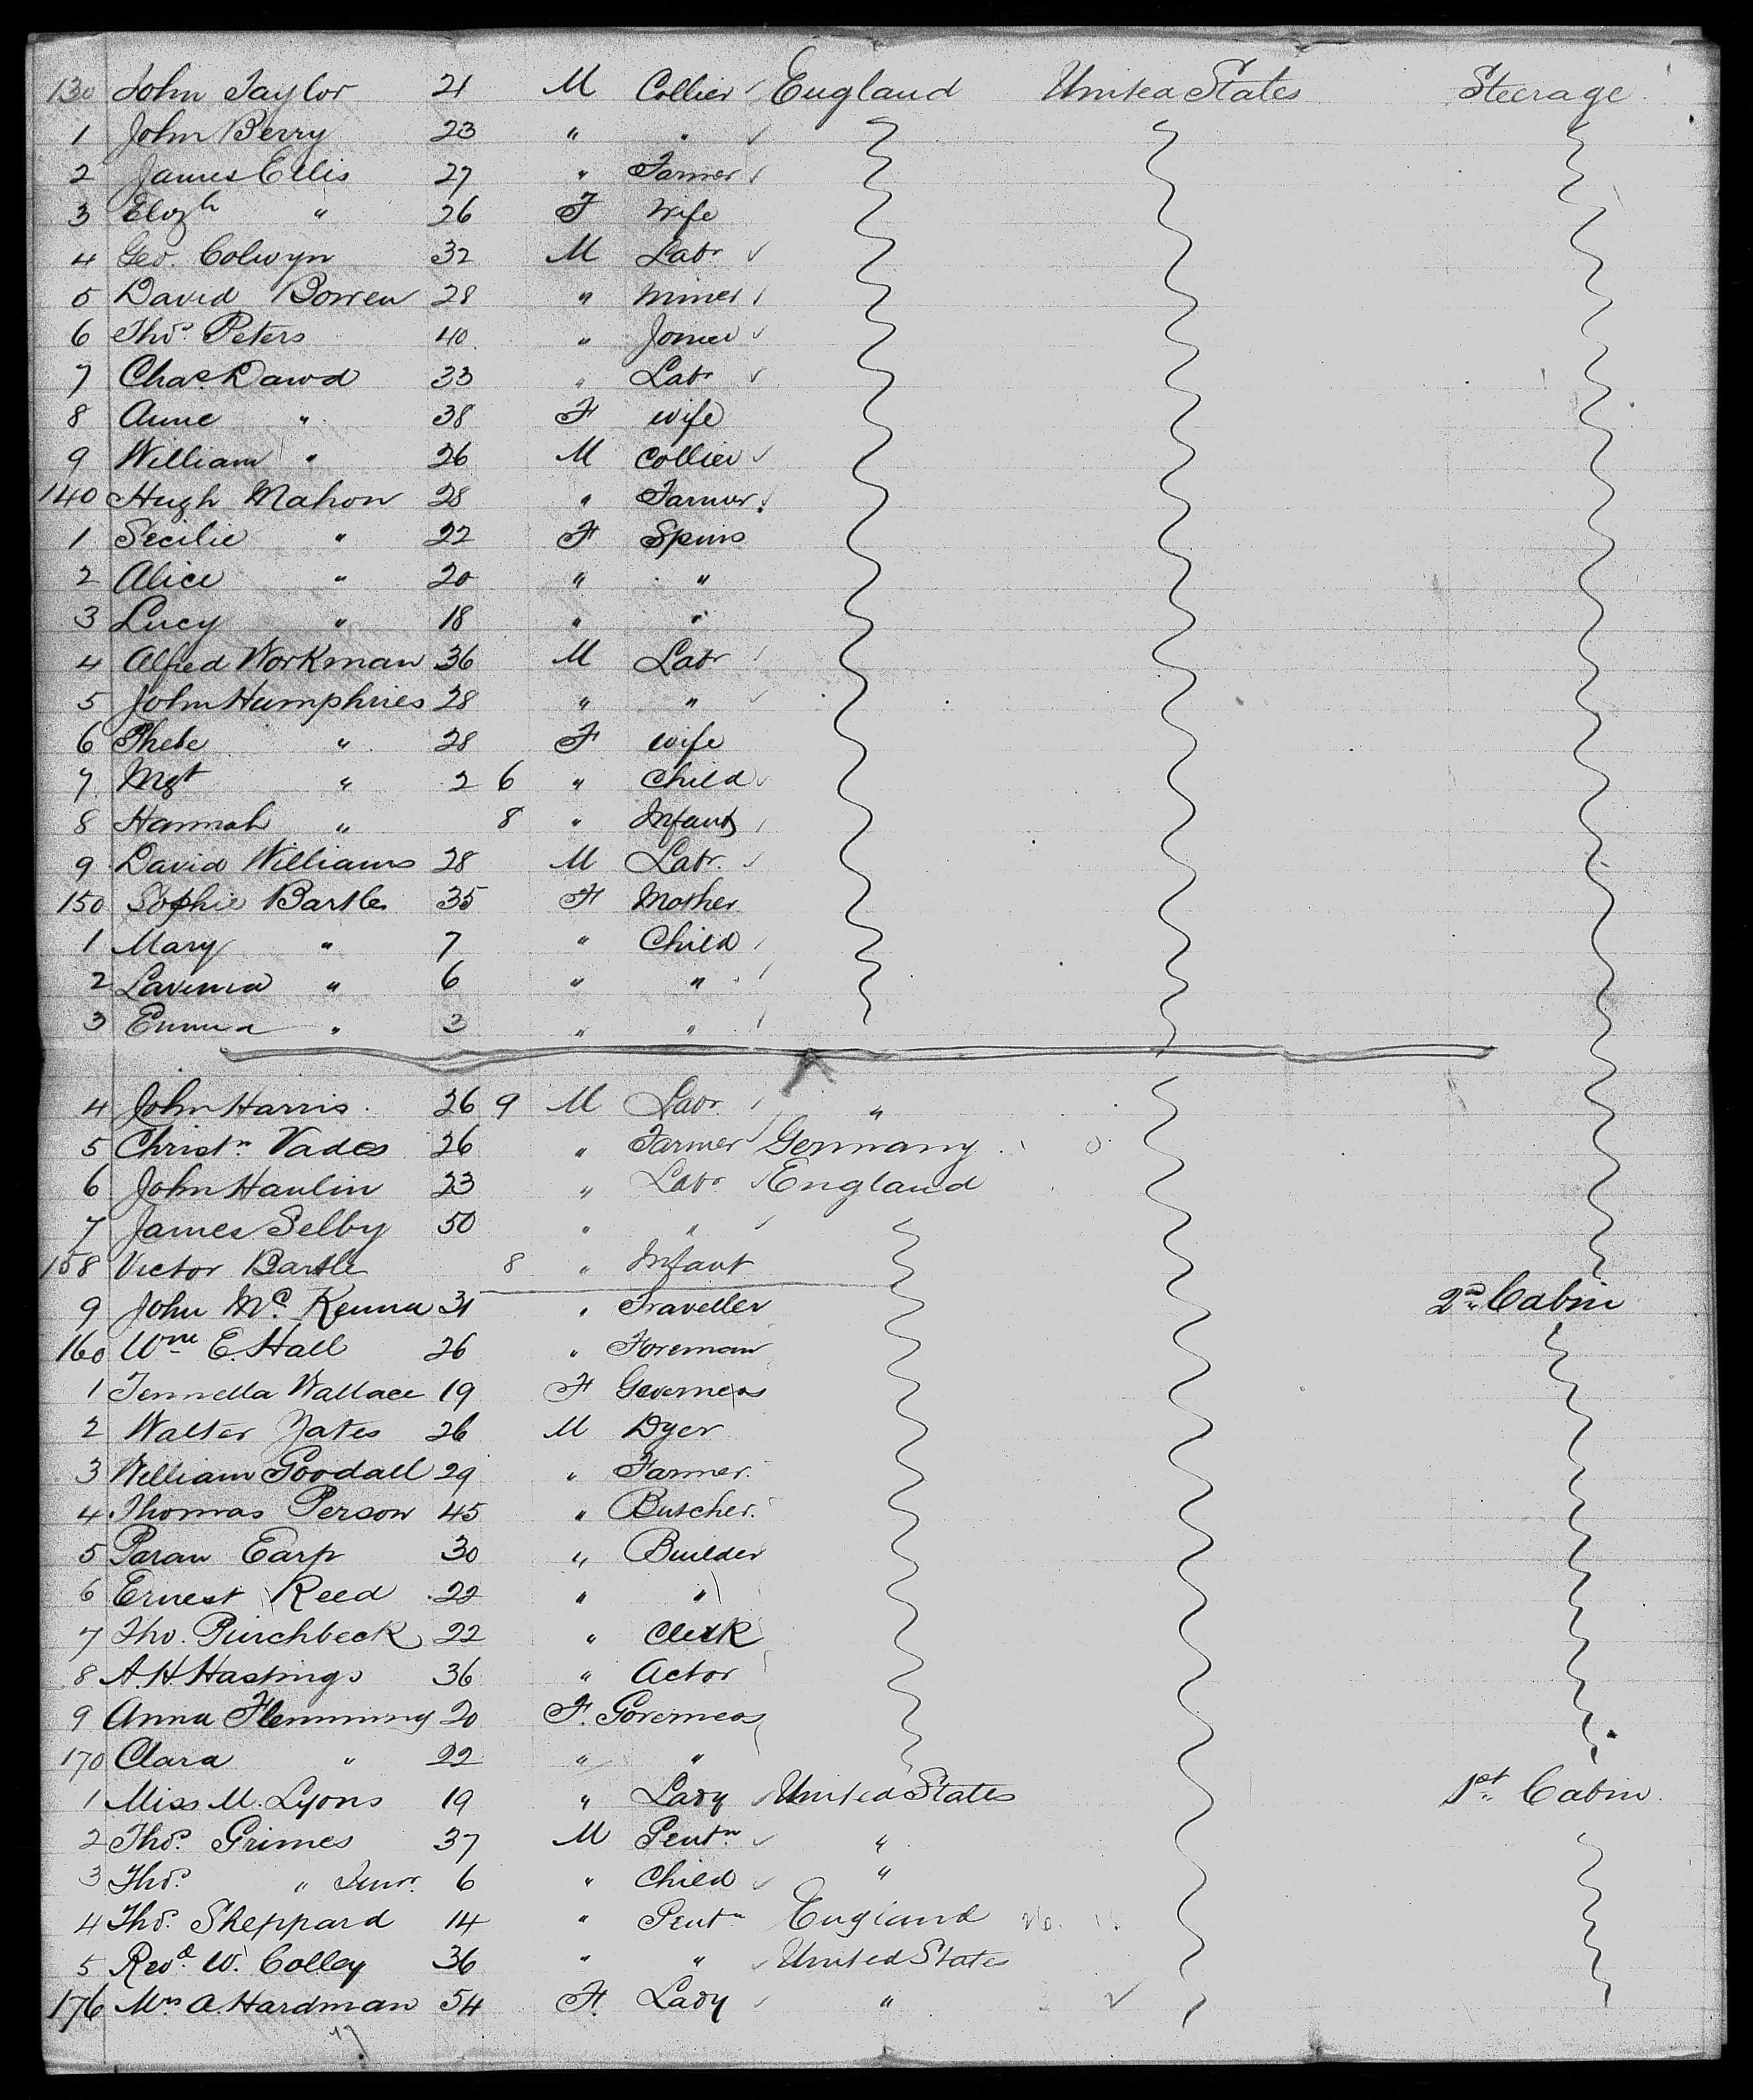 130 John Taylor 21 M Collier England United States Steerage
1 John Berry 23 " "
2 James Ellis 27 " Farmer
3 Elizh " 26 F Wife
4 Geo. Colwyn 32 M Labr
5 David Bowen 28 " Miner
6 Thos. Peters 40 " Joiner
7 Chas. David 33 " Labr
8 Anne " 38 F Wife
9 William " 26 M Collier
140 Hugh Mahon 28 " Farmer
1 Secilie " 22 F Spins
2 Alice " 20 " "
3 Lucy " 18 " "
4 Alfred Workman 36 M Labr
5 John Humphries 28 " "
6 Phebe " 28 F Wife
7 Mgt " 2 6 " Child
8 Hannah " 8 " Infant
9 David Williams 28 M Labr.
150 Sophie Bartle 35 F Mother
1 Mary " 7 " Child
2 Lavinia " 6 " "
3 Emma " 3 " "
4 John Harris 26 9 M Labr. "
5 Christn. Vades 26 " Farmer Germany
6 John Hanlin 23 " Labr. England
7 James Selby 50 " "
158 Victor Bartle 8 " Infant
9 John Mc. Kenna 31 " Traveller 2nd Cabin
160 Wm E. Hall 26 " Foreman
1 Wallace 19 F Governess
2 Walter Yates 26 M Dyer
3 William Goodall 29 " Farmer
4 Thomas Person 45 " Butcher
5 Paran Earp 30 " Builder
6 Ernest Reed 22 " "
7 Tho. Pinchbeck 22 " Clerk
8 A. H. Hastings 36 " Actor
9 Anna Flemming 20 F. Governess
170 Clara " 22 " "
1 Miss M. Lyons 19 " Lady United States 1st. Cabin
2 Thos. Grimes 37 M Gentn "
3 Thos. " Junr. 6 " Child "
4 Thos. Sheppard 14 " Gentn England
5 Revd. W. Colley 36 " " United States
176 Mrs A. Hardman 54 F. Lady "